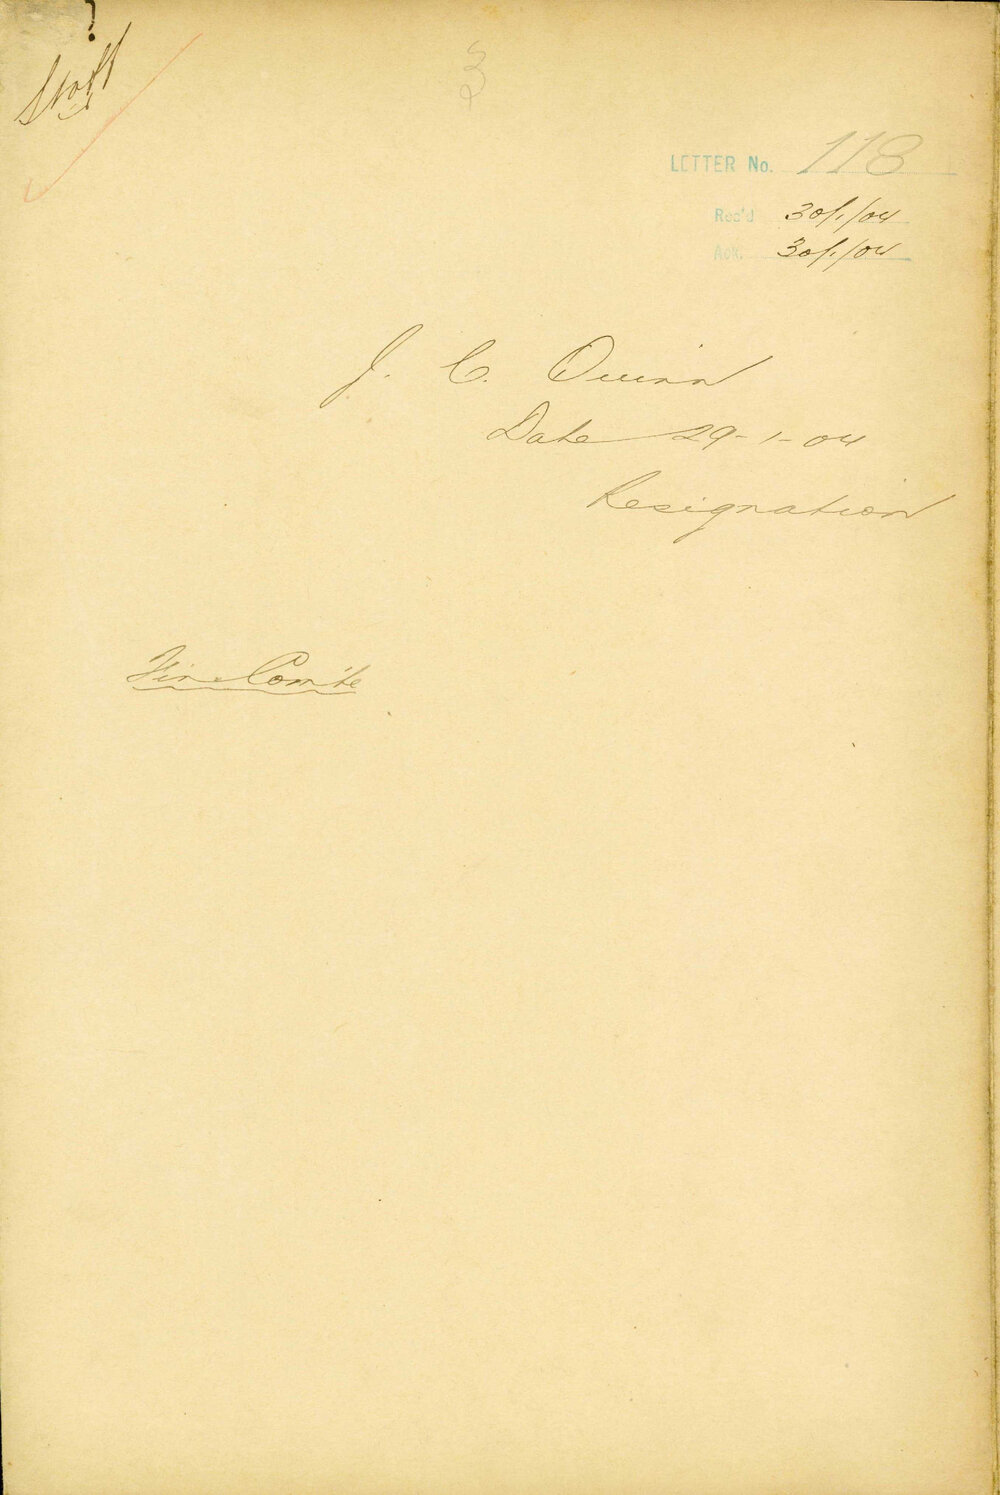 Staff
3
LETTER No. 118
Rec'd 30/1/04
Ack. 30/1/04
J. C. Quinn
Date 29-1-04
Resignation
Fin Com'te